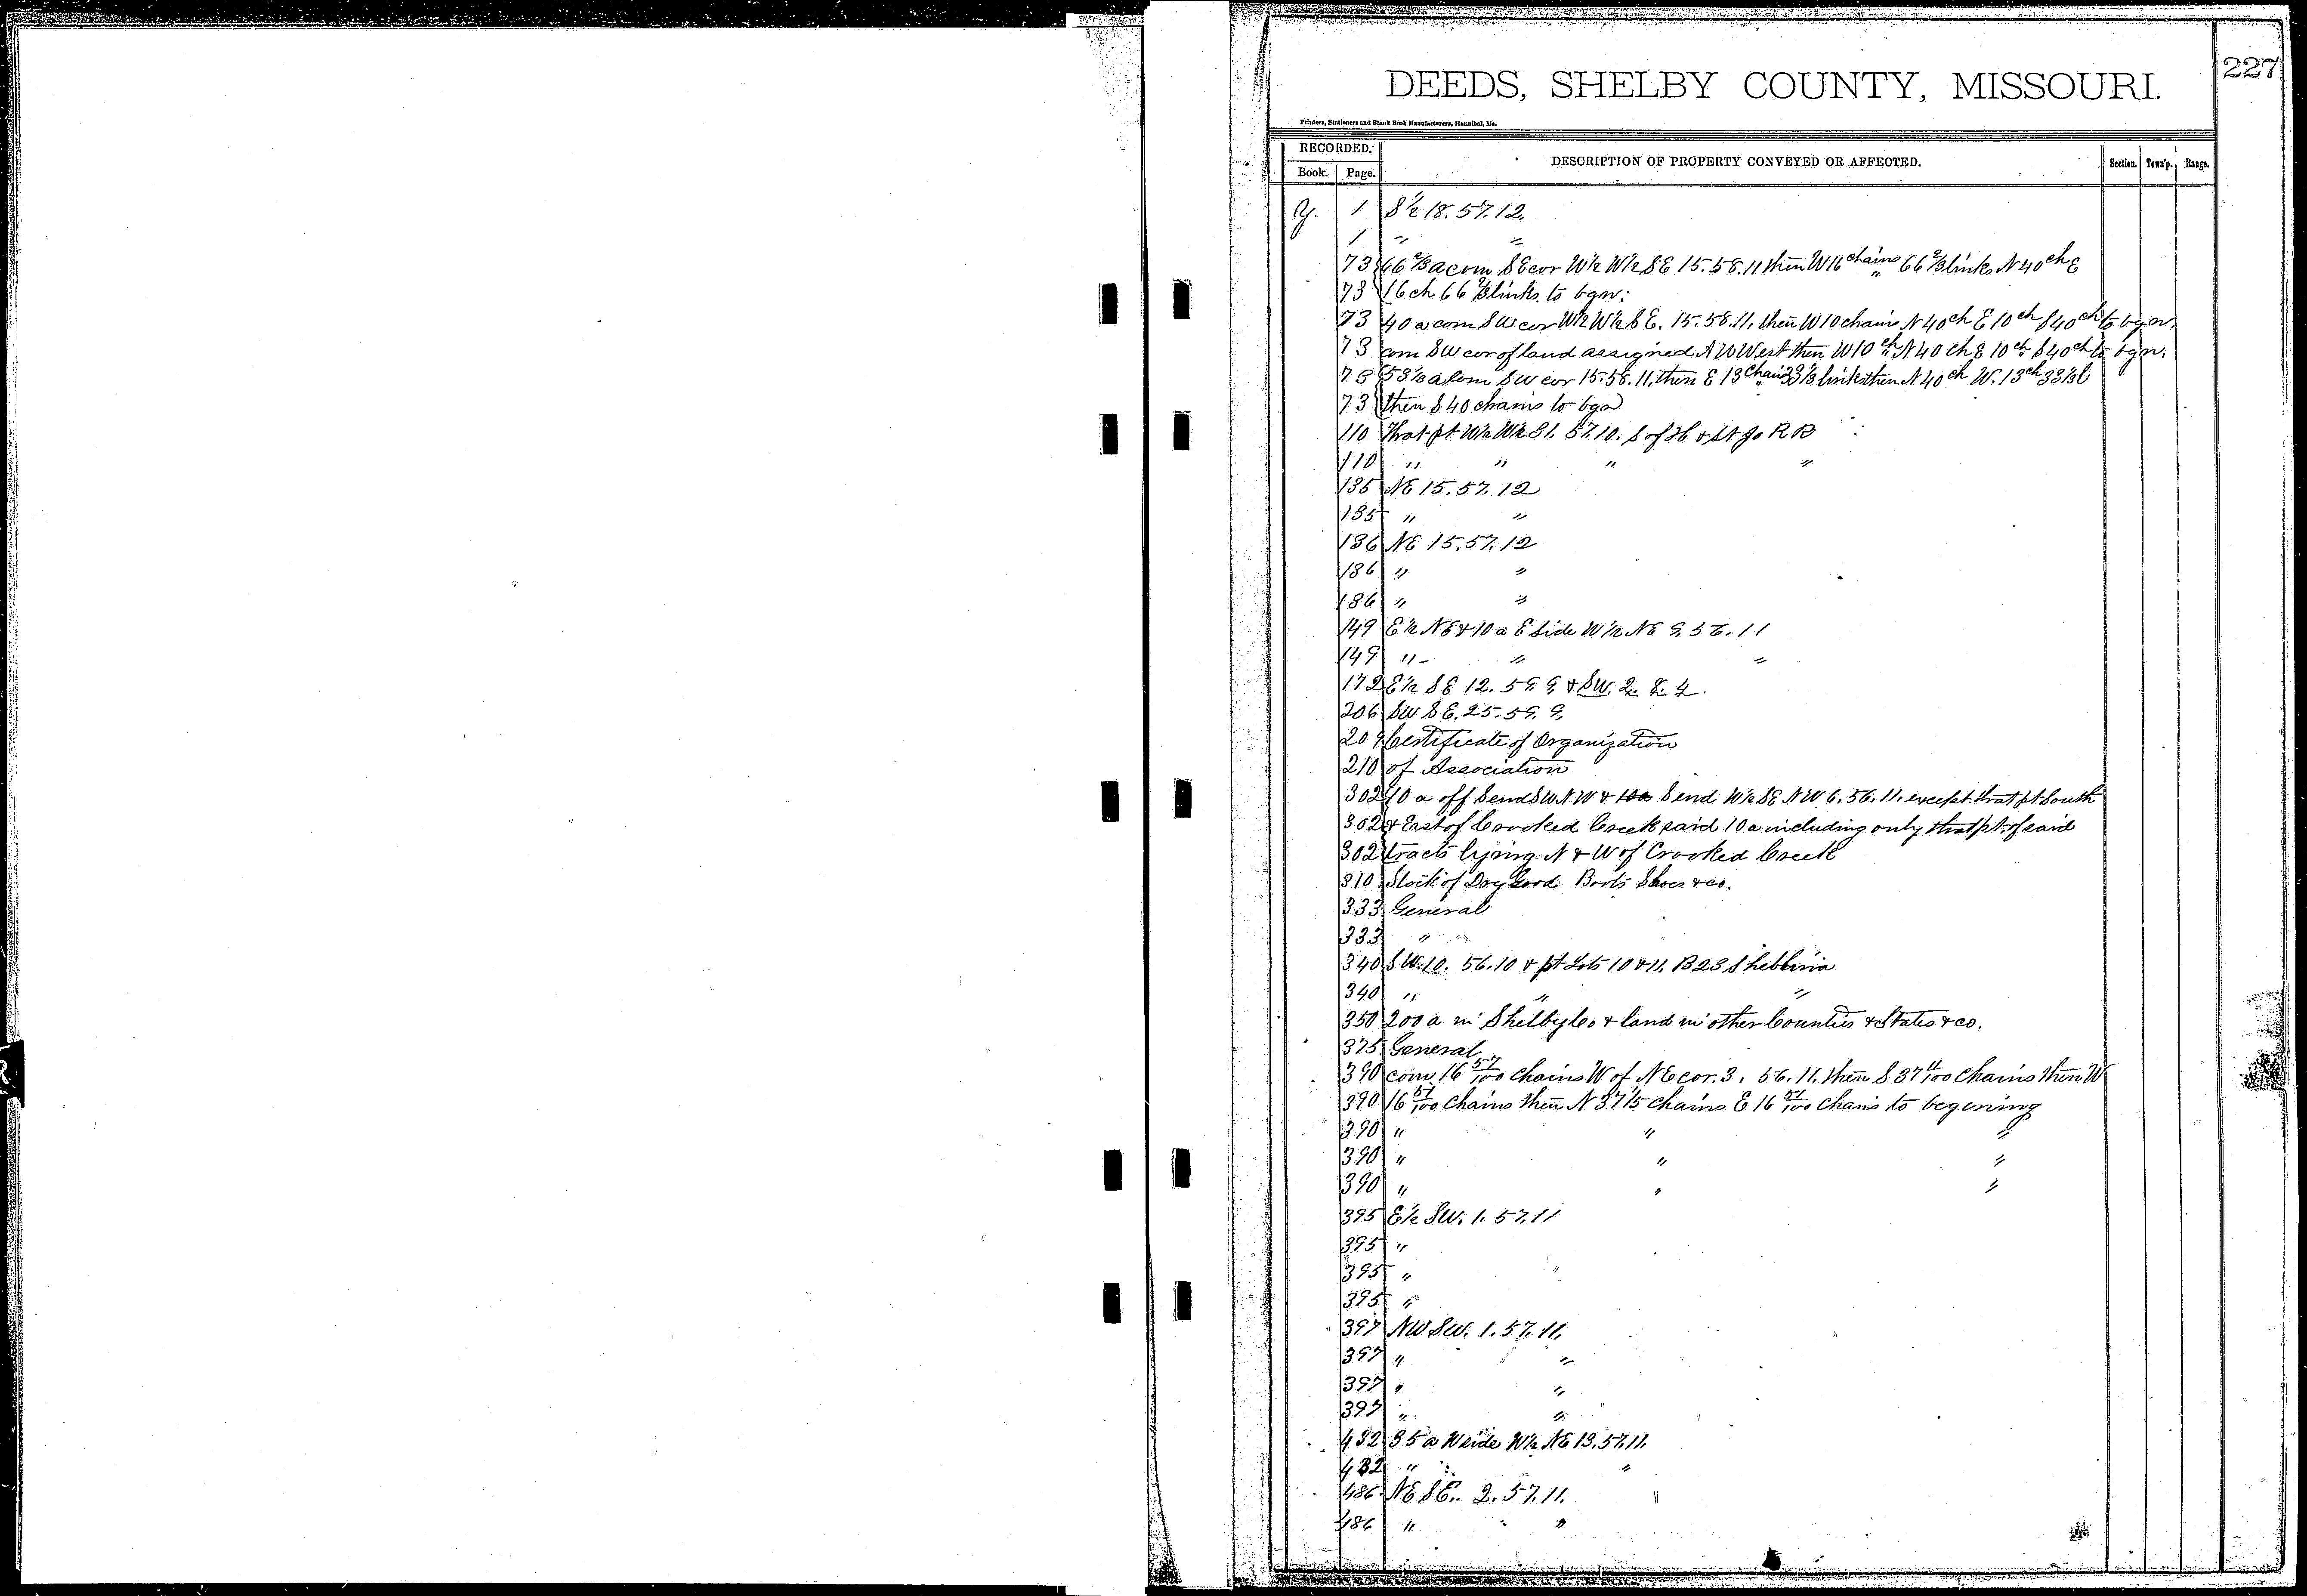 227
DEEDS, SHELBY COUNTY, MISSOURI.
Printers, Stationers and Blank Book Manufacturers, Hannibal, Mo.
RECORDED. DESCRIPTION OF PROPERTY CONVEYED OR AFFECTED. Section. Town'p. Range.
Book. Page.
Y. 1 S½ 18. 57. 12.
1 " "
73 66⅔ a com SE cor W½ W½ SE 15. 58. 11 then W 16 chains 66⅔ links N 40 ch E
73 16 ch 66⅔ links to bgn.
73 40 a com SW cor W½ W½ SE. 15. 58. 11, then W 10 chains N 40 ch E 10 ch S 40 ch to bgn.
73 com SW cor of land assigned A W West then W 10 ch N 40 ch E 10 ch S 40 ch to bgn.
73 53⅓ a com SW cor 15. 58. 11, then E 13 chains 33⅓ links then N 40 ch W. 13 ch 33⅓ l
73 then S 40 chains to bgn
110 That pt W½ W½ 31. 57. 10. S of H & St Jo R R
110 " " " "
135 NE 15. 57. 12
135 " "
136 NE 15. 57. 12
136 " "
136 " "
149 E½ NE & 10 a E side W½ NE 9. 56. 11
149 " " "
172 E½ SE 12. 59. 9 & SW. 2. 8. 4.
206 SW SE. 25. 59. 9.
209 Certificate of Organization
210 of Association
302 10 a off S end SW NW & 10a S end W½ SE NW 6. 56. 11. except that pt South
302 & East of Crooked Creek said 10 a including only that pt. of said
302 tracts lying N & W of Crooked Creek
310 Stock of Dry Good Boots Shoes &co.
333 General
333 "
340 SW. 10. 56. 10 & pt Lots 10 & 11, B 23 Shelbina
340 " " "
350 200 a in Shelby Co & land in other Counties & States &co.
375 General
390 com. 16 57/100 chains W of NE cor. 3. 56. 11. then S 37 11/100 chains then W
390 16 57/100 chains then N 37 15 chains E 16 57/100 chains to begening
390 " " "
390 " " "
390 " " "
395 E½ SW. 1. 57. 11
395 "
395 "
395 "
397 NW SW. 1. 57. 11.
397 " "
397 " "
397 " "
432 35 a W side W½ NE 13. 57. 11.
432 " "
486 NE SE. 2. 57. 11.
486 " "